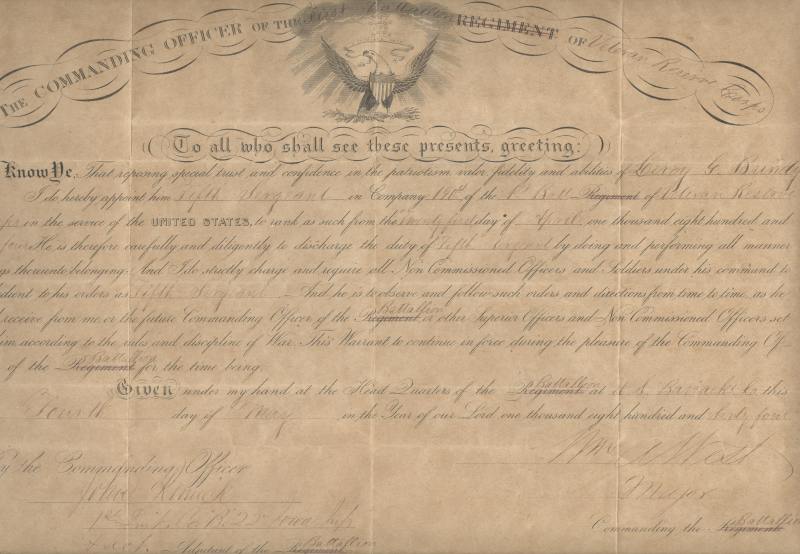 THE COMMANDING OFFICER OF THE First Battalion REGIMENT OF Veteran Reserve Corps
To all who shall see these presents, greeting:
Know Ye, That reposing special trust and confidence in the patriotism, valor fidelity and abilities of Leroy G.
I do hereby appoint him Fifth Sergeant in Company of the 1st Batt Regiment of Veteran Reserve
in the service of the UNITED STATES, to rank as such from the Twenty first day of April one thousand eight hundred and
four He is therefore carefully and diligently to discharge the duty of Fifth Sergeant by doing and performing all manner
gs thereunto belonging. And I do strictly charge and require all Non Commissioned Officers and Soldiers under his command to
dient to his orders as Fifth Sergeant And he is to observe and follow such orders and directions from time to time, as he
receive from me or the future Commanding Officer of the Regiment Battalion or other Superior Officers and Non Commissioned Officers set
im according to the rules and discipline of War. This Warrant to continue in force during the pleasure of the Commanding Of-
of the Regiment Battallion for the time being.
Given under my hand at the Head Quarters of the Regiment Battallion at Barracks this
Fourth day of May in the Year of our Lord one thousand eight hundred and Sixty four
y the Commanding Officer
Major
John
1st Lieut Co Iowa
Commanding the Regiment Battallion
Adjutant of the Regiment Battallion